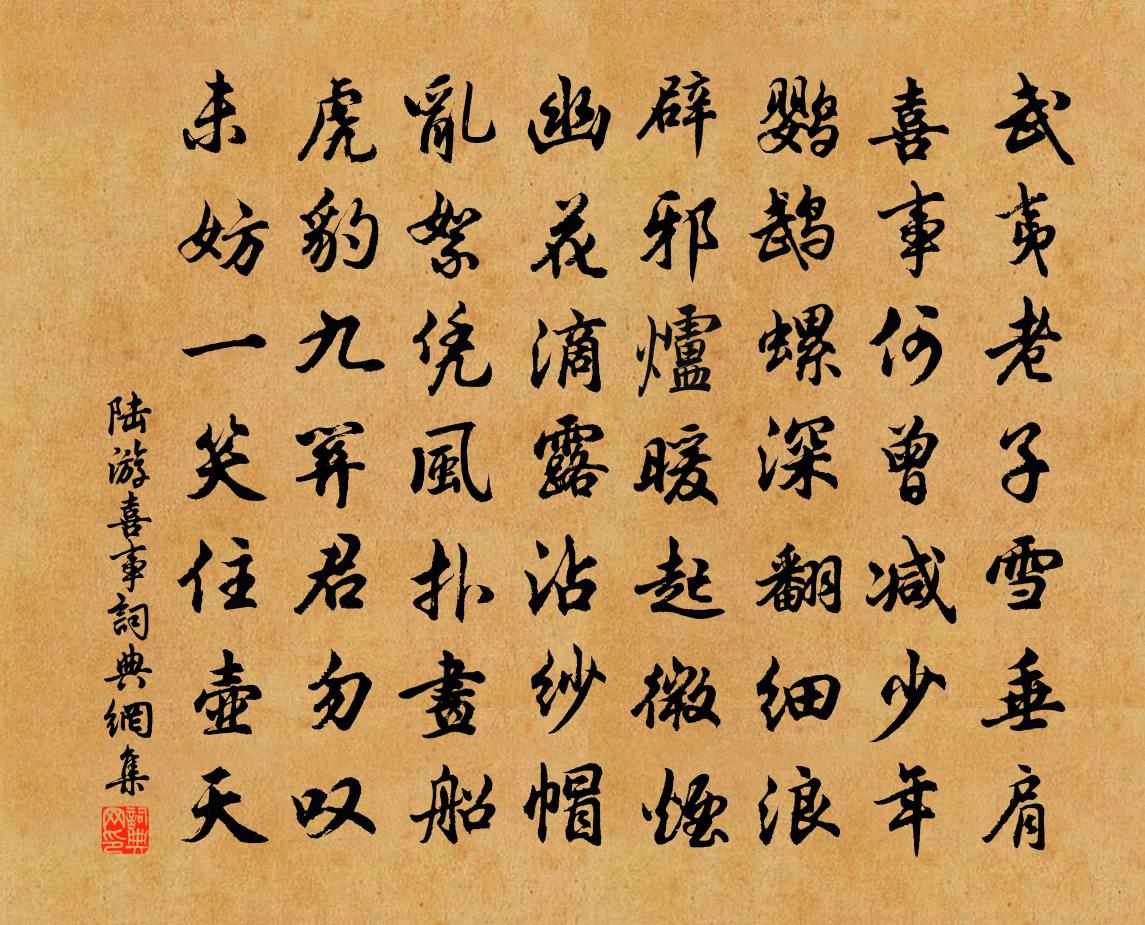 武夷老子雪垂肩
喜事何曾减少年
鹦鹉螺深翻细浪
辟邪爐暖起微煙
幽花滴露沾纱帽
亂絮凭風扑畫船
虎豹九關君勿叹
未妨一笑住壺天
陆游喜事詞典網集
詞典
网印